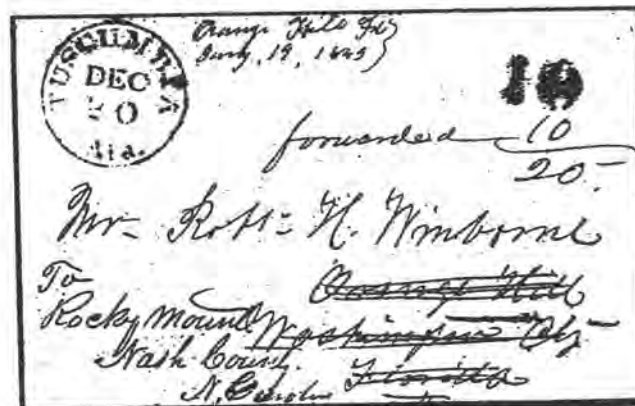 TUSCUMBIA
DEC
Ala.
Orange Hill Fl
Jany, 19, 1849
10
forwarded 10
20
Mr Robt H. Winborne
To
Orange Hill
Rocky Mound Washington Cty
Nash County.
N. Carolin Florida